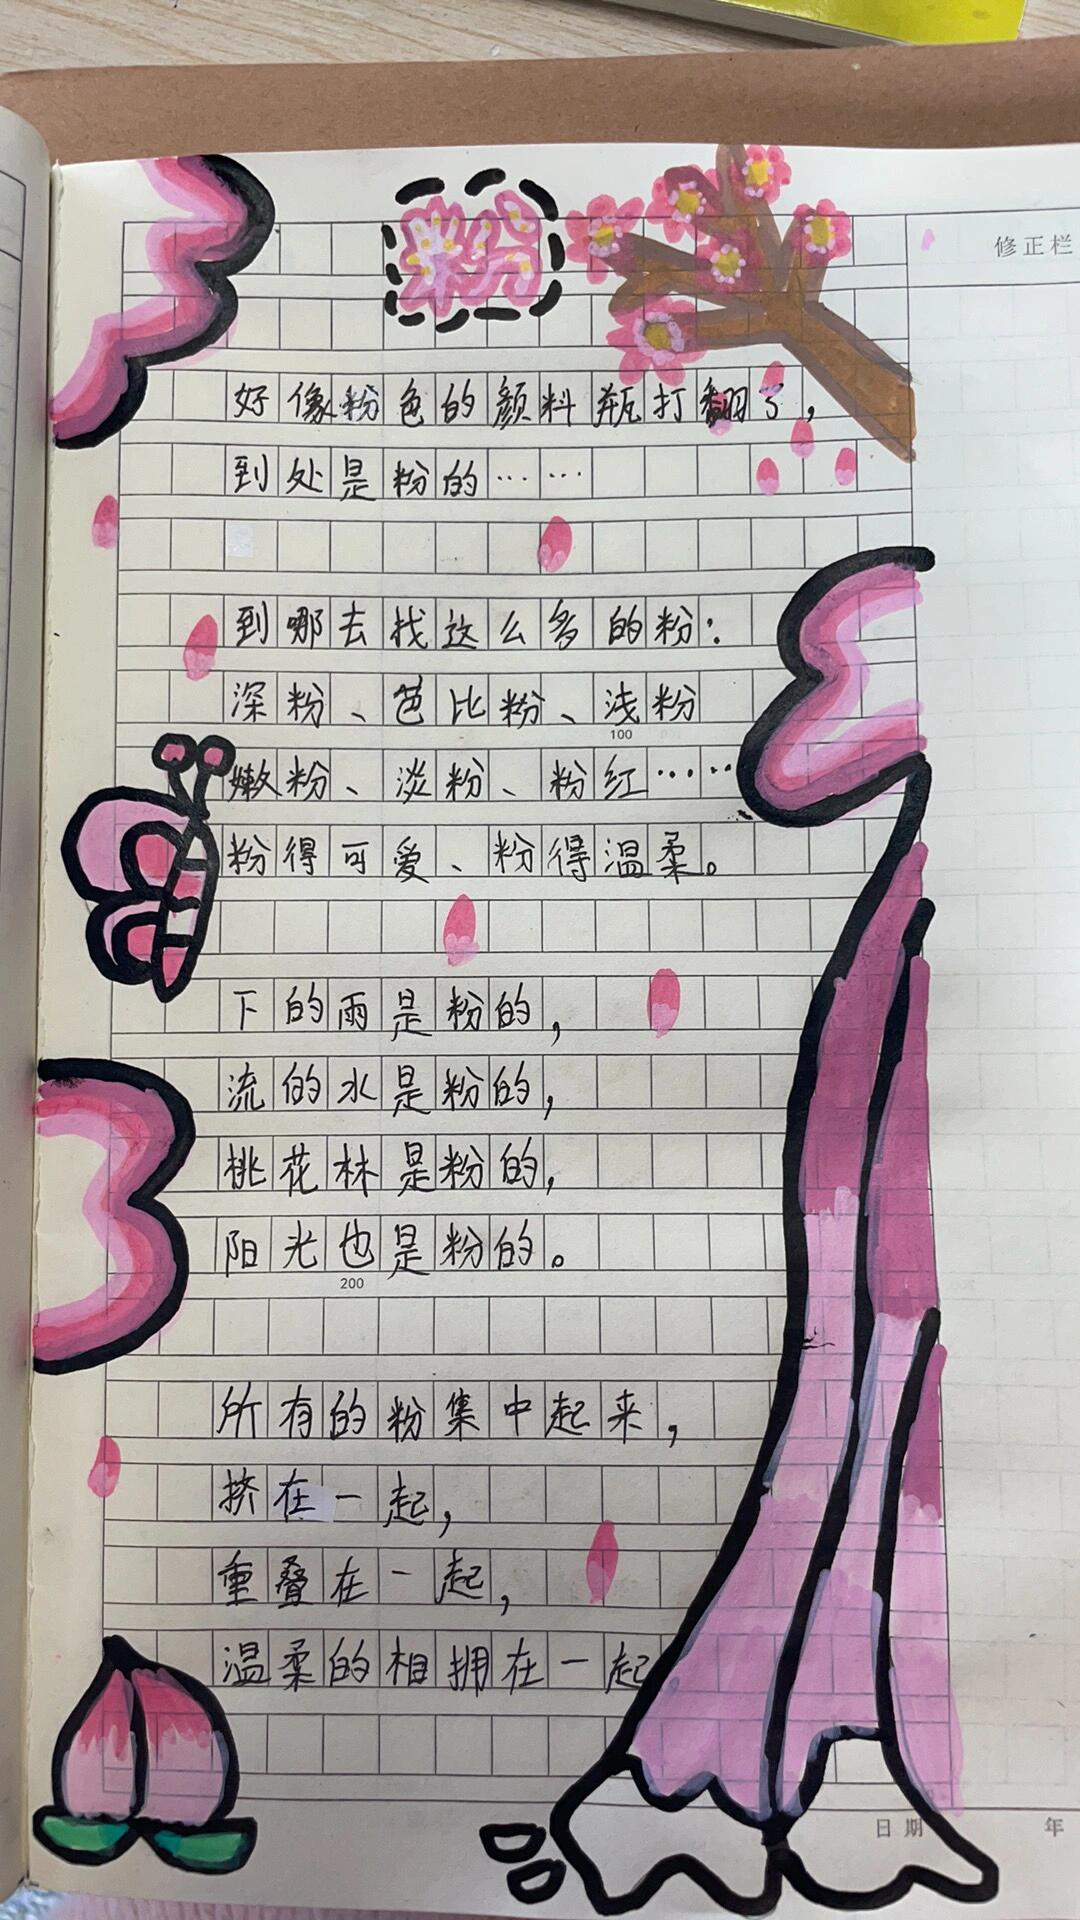 粉
修正栏
好像粉色的颜料瓶打翻了，
到处是粉的……
到哪去找这么多的粉：
深粉、芭比粉、浅粉
100
嫩粉、淡粉、粉红……
粉得可爱、粉得温柔。
下的雨是粉的，
流的水是粉的，
桃花林是粉的，
阳光也是粉的。
200
所有的粉集中起来，
挤在一起，
重叠在一起，
温柔的相拥在一起
日期 年